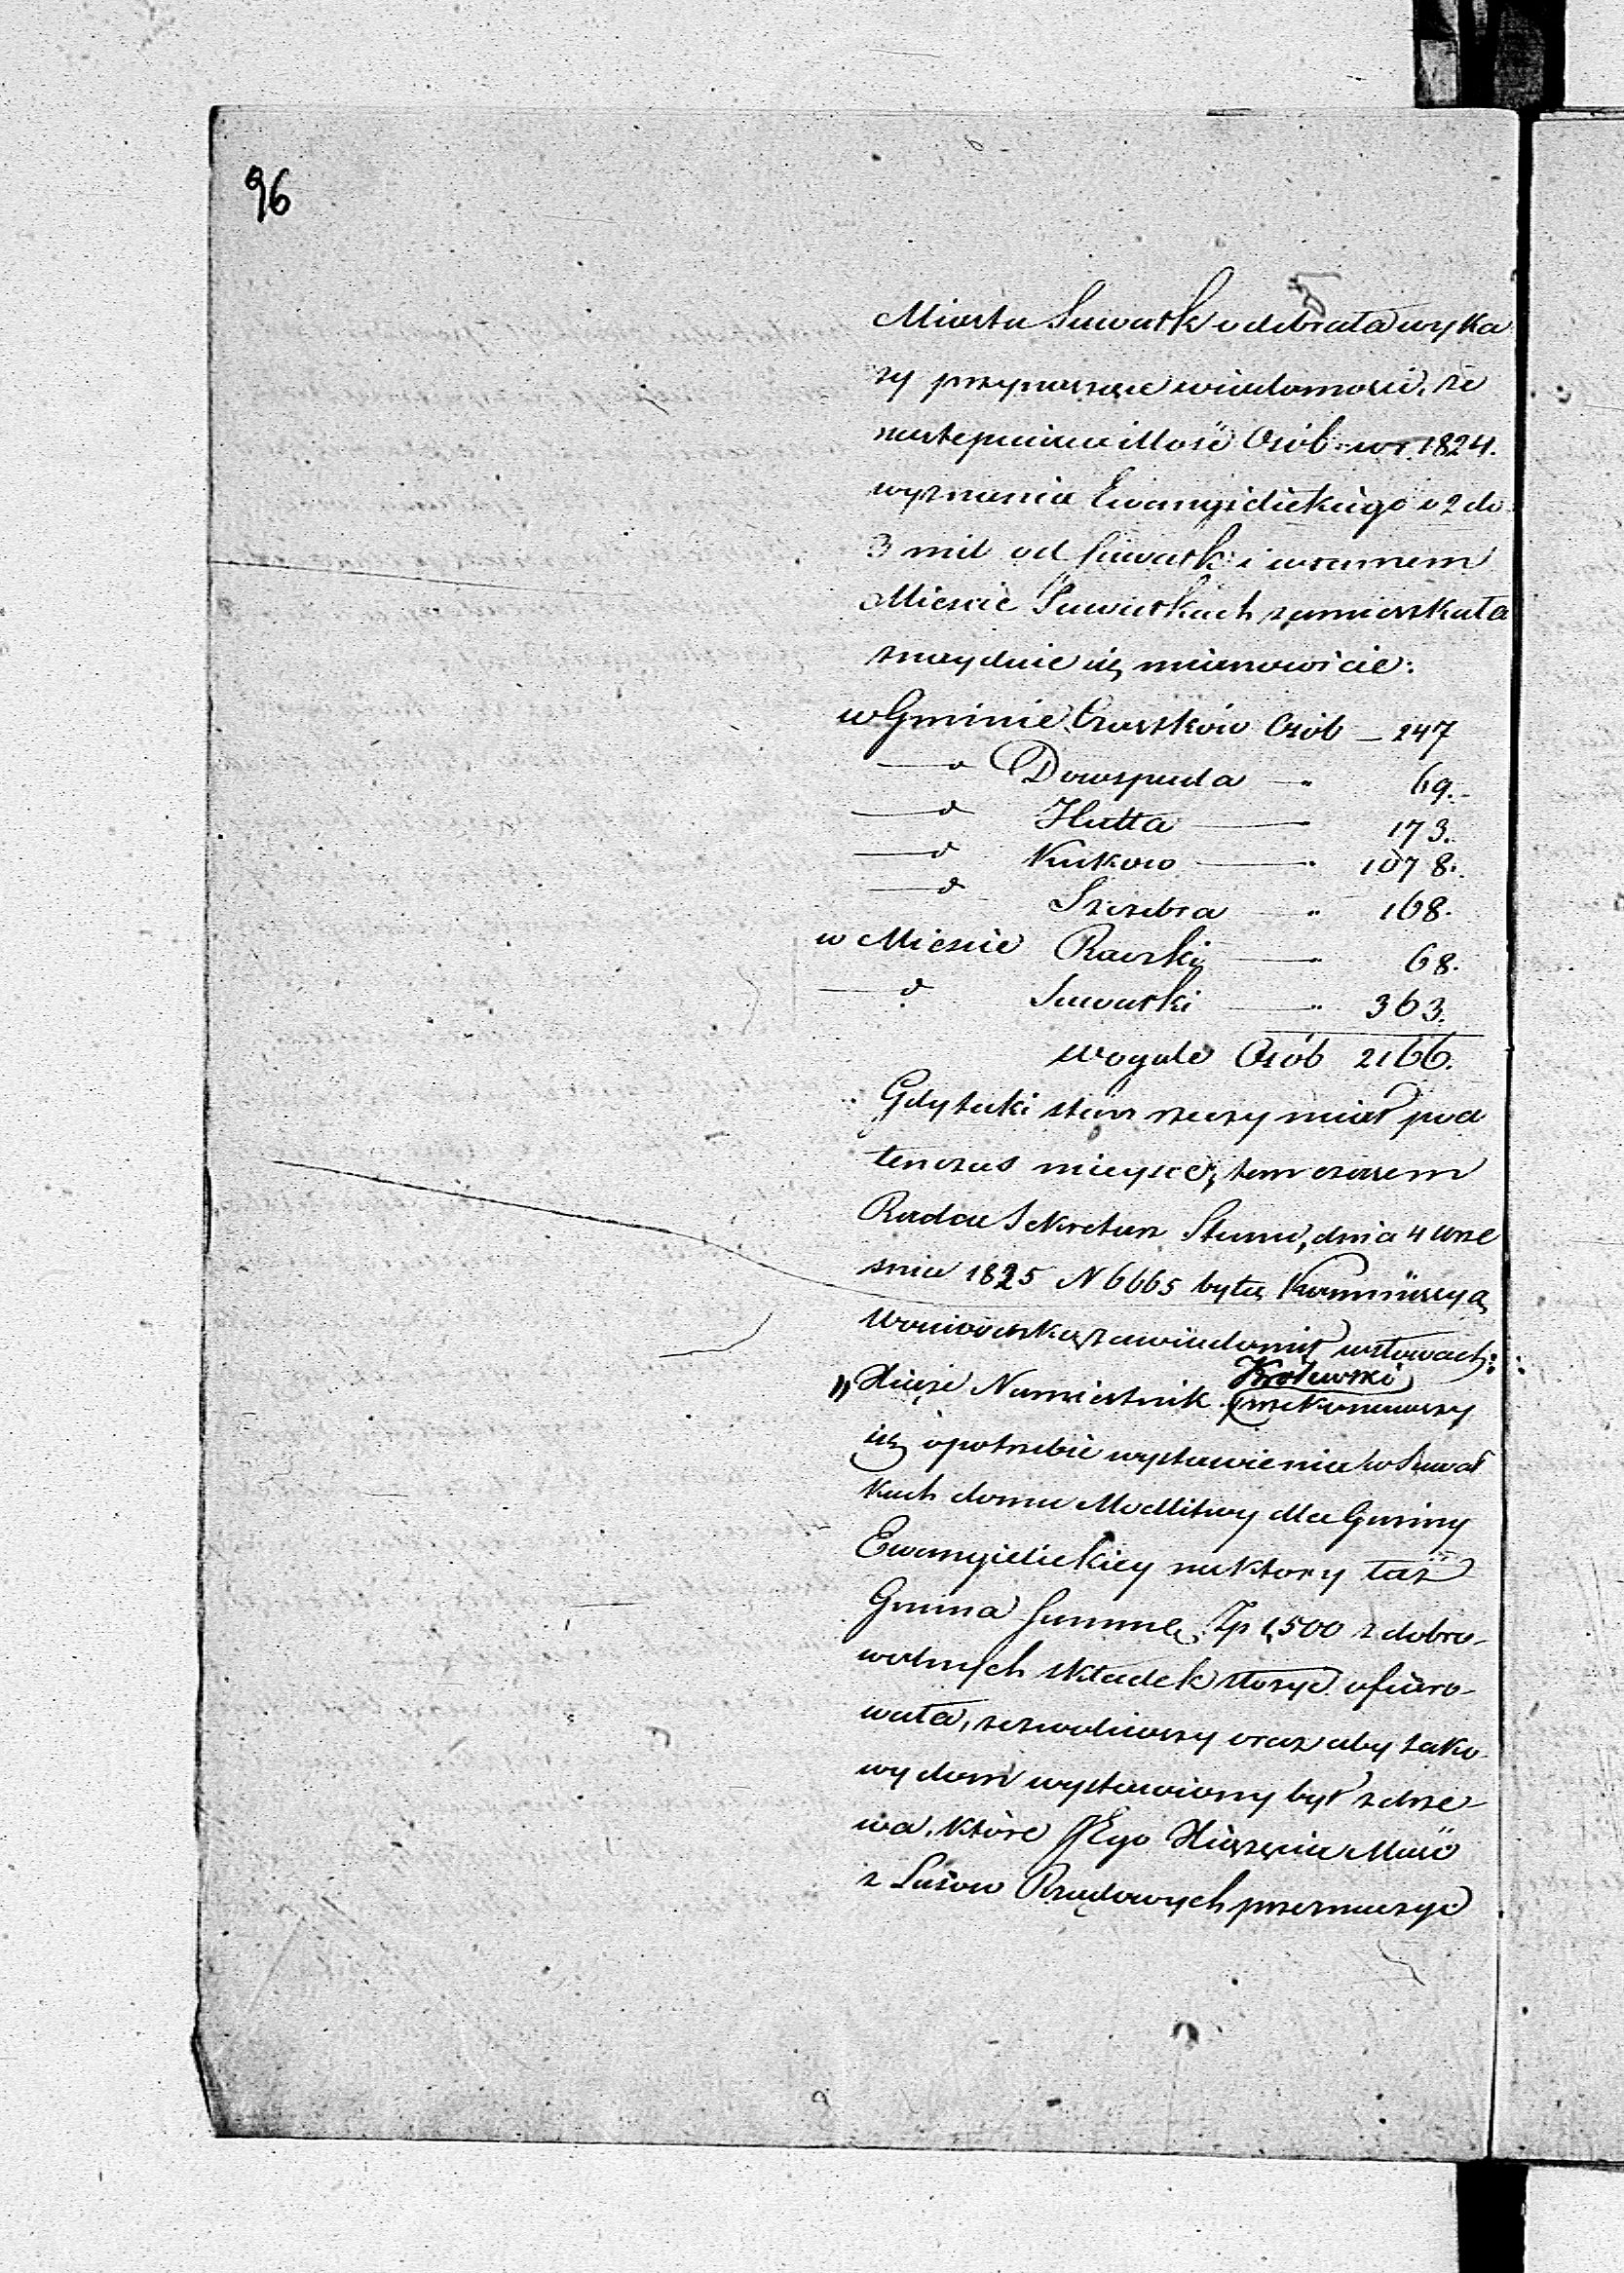 96
Miasta Suwałk odebrała wyka
zy przynoszące wiadomość, że
następuiąca illość Osób w r. 1824.
wyznania Ewangielickiego o 2 do
3 mil od Suwałk i w samem
Mieście Suwałkach zamieszkała
znayduie się mianowicie:
w Gminie Czostków Osób — 247
— d° Dowspuda — " 69.
— d° Hutta — 173.
— d° Kukowo — " 1078.
— d° Szczebra — " 168.
w Mieście Raczki — " 68.
— d° Suwałki — " 363.
wogóle Osób 2166.
Gdy taki stan rzeczy miał pod
tenczas mieysce, tem czasem
Radca Sekretarz Stanu, dnia 4 Wrze
śnia 1825 N 6665 byłą Kommissyą
Woiewódzką zawiadomił w słowach:
„Xiąże Namiestnik Królewski przekonawszy
się o potrzebie wystawienia w Suwał
kach domu Modlitwy dla Gminy
Ewangielickiey na który taż
Gmina Summę Zp 1,500 z dobro-
wolnych składek złożyć ofiaro-
wała, zezwoliwszy oraz aby tako-
wy dom wystawiony był z drze-
wa, które JEgo Xiążęca Mość
z Lasów Rządowych przeznaczyć